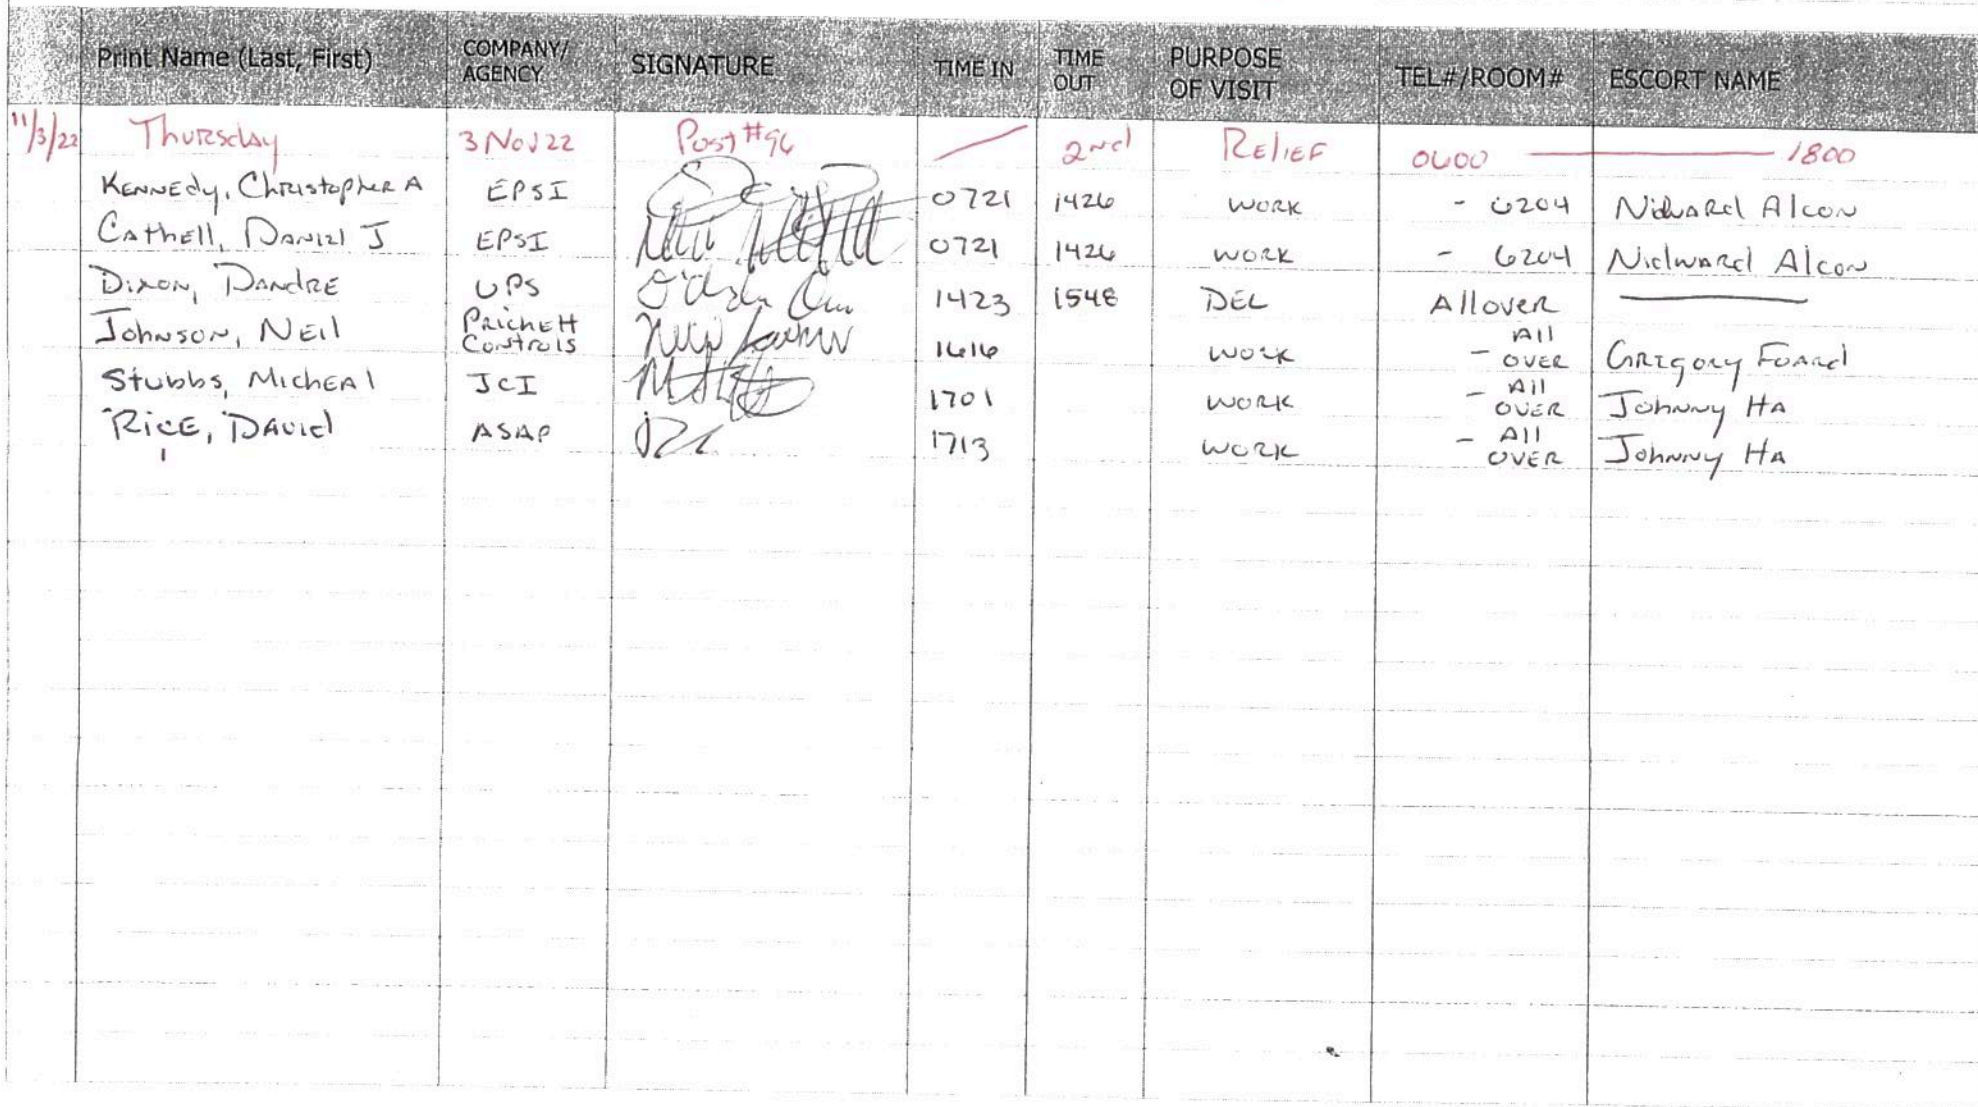 Print Name (Last, First) COMPANY/ AGENCY SIGNATURE TIME IN TIME OUT PURPOSE OF VISIT TEL#/ROOM# ESCORT NAME
11/3/22 Thursday 3 Nov 22 Post #96 2nd RELIEF 0600 1800
KENNEdy, Christopher A EPSI 0721 1426 WORK - 6204 Nidward Alcon
Cathell, Daniel J EPSI 0721 1426 WORK - 6204 Nidward Alcon
Dixon, DANDRE UPS 1423 1548 DEL Allover
Johnson, NEil Prichett Controls 1616 WORK - All OVER Gregory Foard
Stubbs, MichEAl JCI 1701 WORK - All OVER Johnny HA
RicE, David ASAP 1713 WORK - All OVER Johnny HA